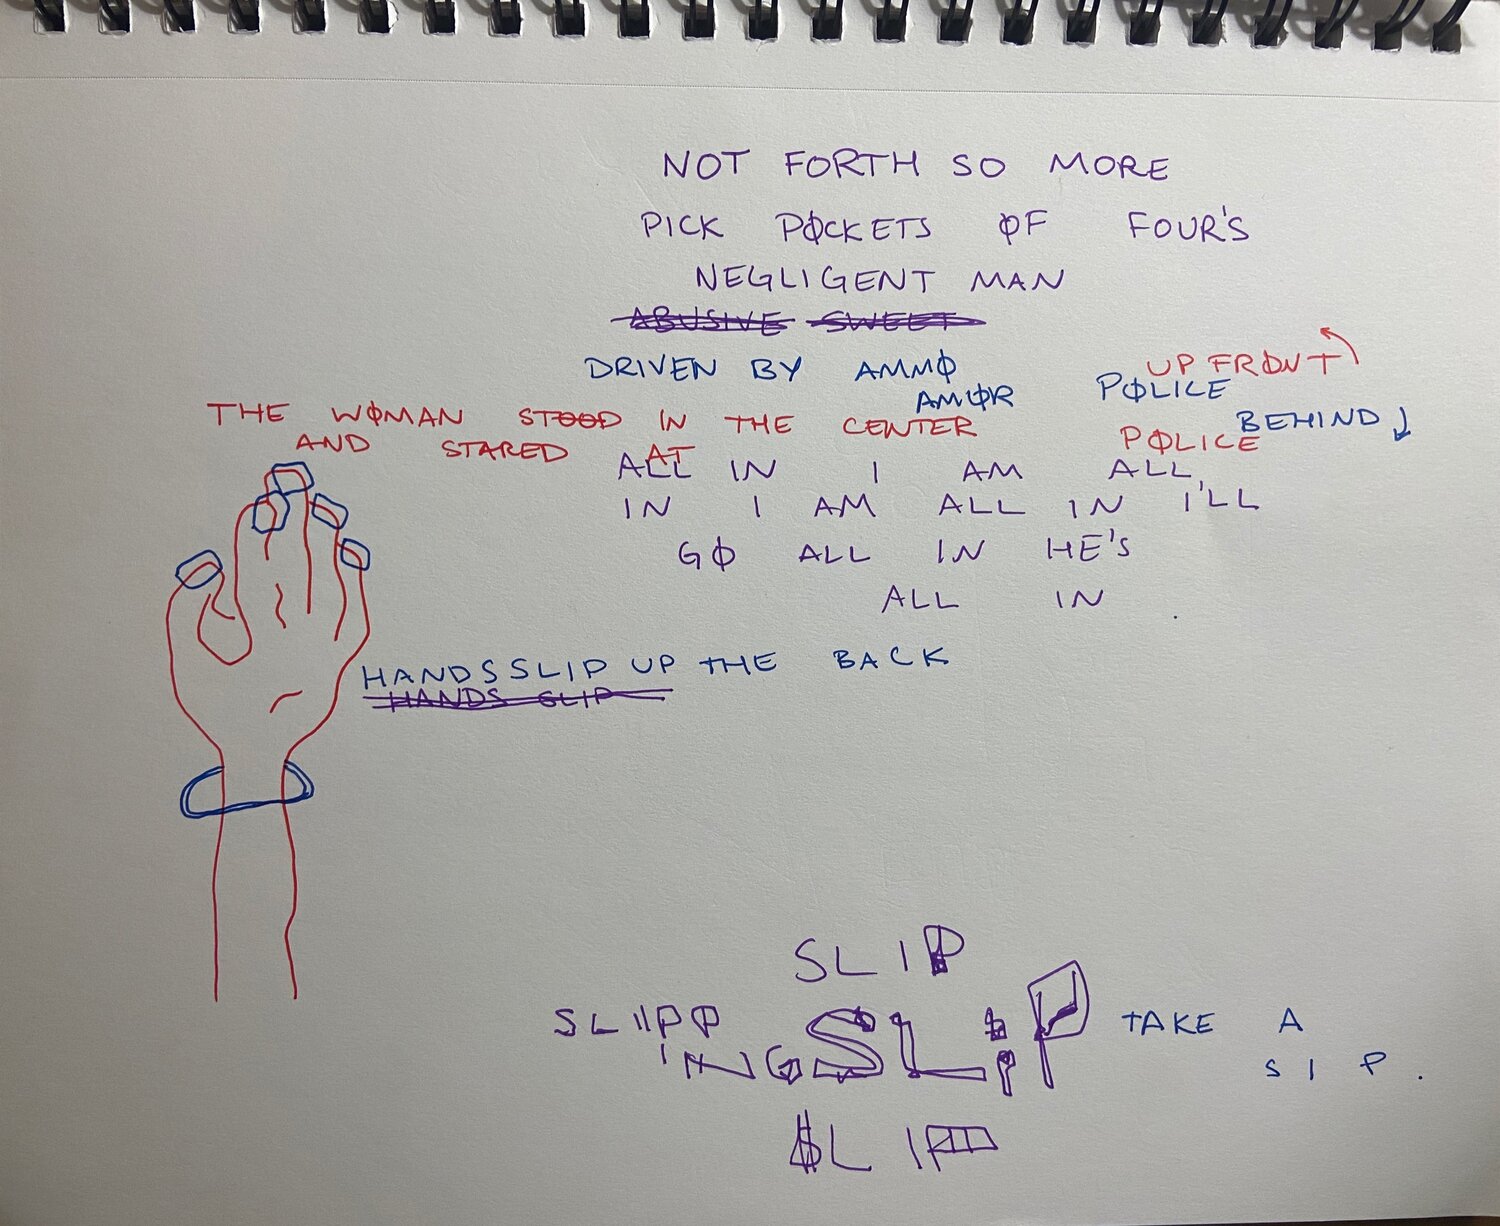 NOT FORTH SO MORE
PICK PØCKETS ØF FOUR'S
NEGLIGENT MAN
ABUSIVE SWEET
DRIVEN BY AMMØ
AMØR
UP FRØNT
PØLICE
BEHIND
PØLICE
THE WØMAN STOOD IN THE CENTER
AND STARED AT
ALL IN I AM ALL
IN I AM ALL IN I'LL
GØ ALL IN HE'S
ALL IN
HANDS SLIP UP THE BACK
HANDS SLIP
SLIP
SLIPP
ING
SLIP
TAKE A
SIP.
$LIP